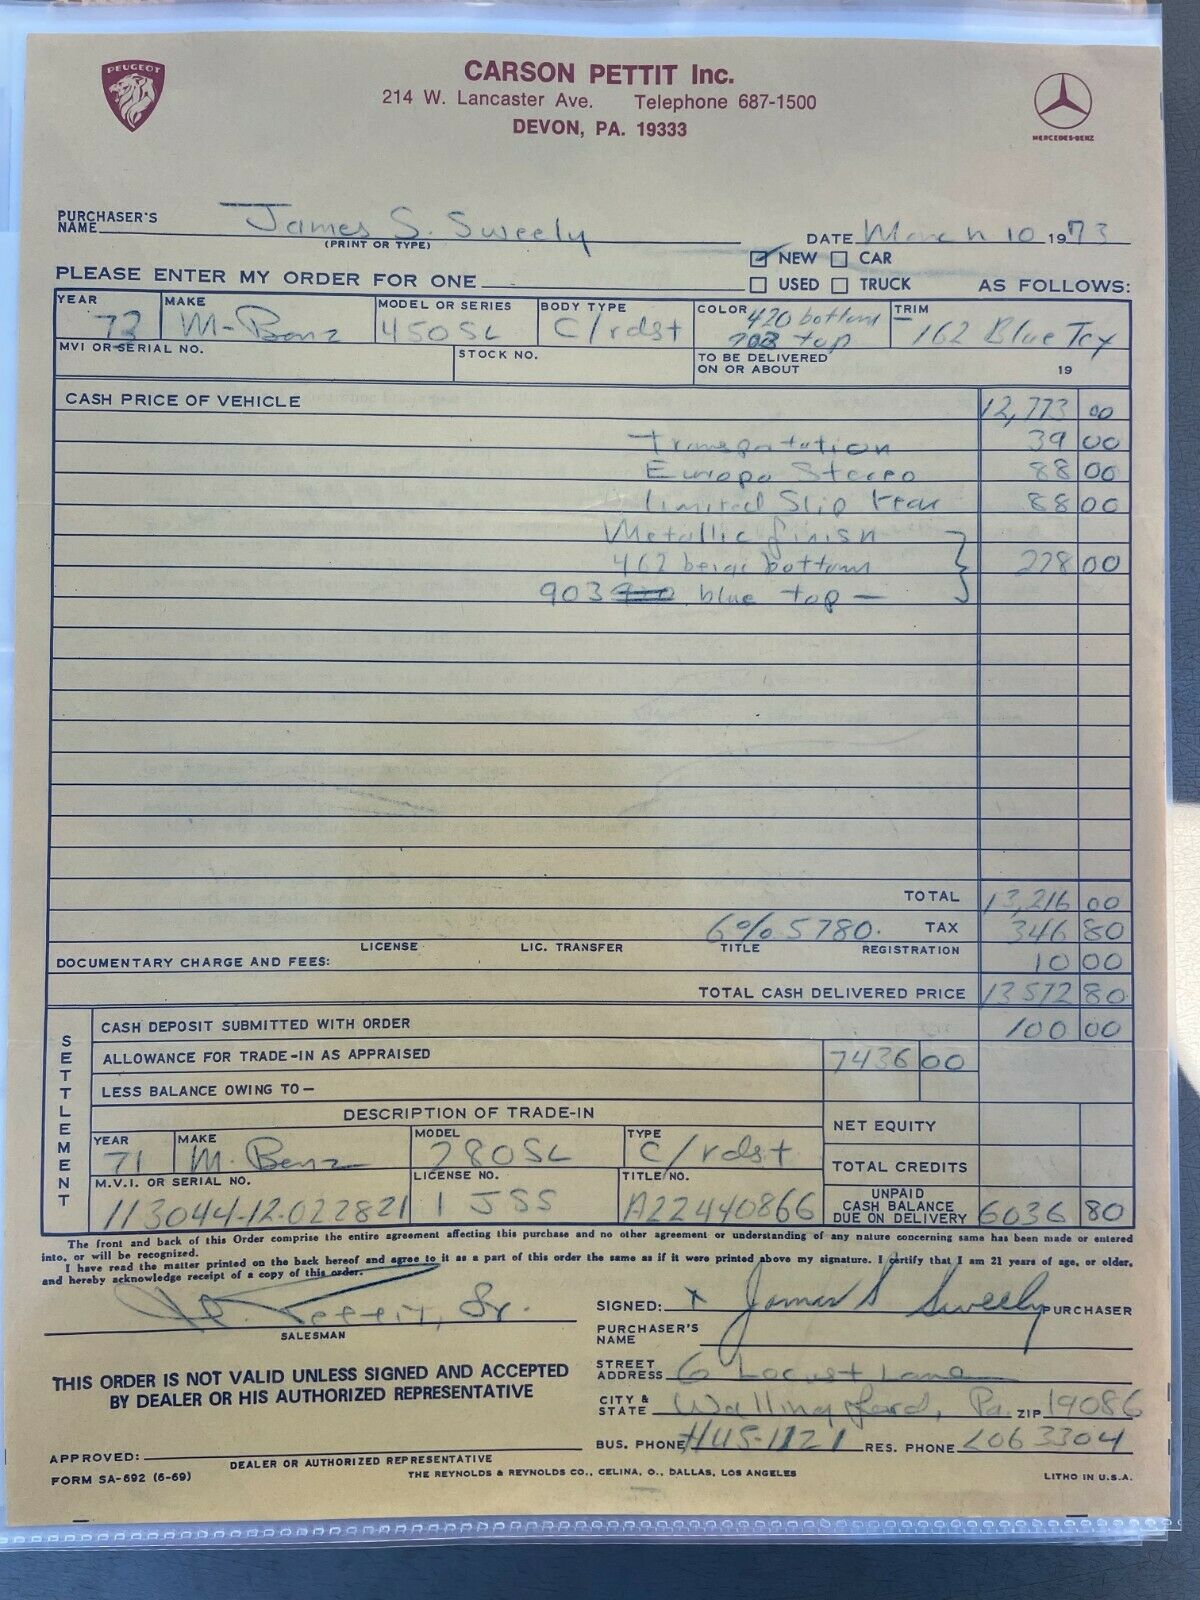 PEUGEOT
CARSON PETTIT Inc.
214 W. Lancaster Ave. Telephone 687-1500
DEVON, PA. 19333
MERCEDES-BENZ
PURCHASER'S NAME James S. Sweely
(PRINT OR TYPE)
DATE March 10 1973
NEW CAR
PLEASE ENTER MY ORDER FOR ONE
USED TRUCK AS FOLLOWS:
YEAR 73 MAKE M-Benz MODEL OR SERIES 450SL BODY TYPE C/rdst COLOR 420 bottom top TRIM 162 Blue Tex
MVI OR SERIAL NO. STOCK NO. TO BE DELIVERED ON OR ABOUT 19
CASH PRICE OF VEHICLE 12,773 00
Transportation 39 00
Europa Stereo 88 00
limited Slip rear 88 00
Metallic finish
462 beige bottom 228 00
903 blue top —
TOTAL 13,216 00
6% 5780. TAX 346 80
LICENSE LIC. TRANSFER TITLE REGISTRATION
DOCUMENTARY CHARGE AND FEES: 10 00
TOTAL CASH DELIVERED PRICE 13572 80
SETTLEMENT
CASH DEPOSIT SUBMITTED WITH ORDER 100 00
ALLOWANCE FOR TRADE-IN AS APPRAISED 7436 00
LESS BALANCE OWING TO —
DESCRIPTION OF TRADE-IN
NET EQUITY
YEAR 71 MAKE M. Benz MODEL 280SL TYPE C/rdst
TOTAL CREDITS
M.V.I. OR SERIAL NO. 113044-12-022821 LICENSE NO. 1 JSS TITLE NO. A22440866
UNPAID CASH BALANCE DUE ON DELIVERY 6036 80
The front and back of this Order comprise the entire agreement affecting this purchase and no other agreement or understanding of any nature concerning same has been made or entered
into, or will be recognized.
I have read the matter printed on the back hereof and agree to it as a part of this order the same as if it were printed above my signature. I certify that I am 21 years of age, or older,
and hereby acknowledge receipt of a copy of this order.
Pettit, Sr.
SALESMAN
SIGNED: x James S Sweely PURCHASER
PURCHASER'S NAME
THIS ORDER IS NOT VALID UNLESS SIGNED AND ACCEPTED
BY DEALER OR HIS AUTHORIZED REPRESENTATIVE
STREET ADDRESS 6 Locust Lane
CITY & STATE Wallingford, Pa. ZIP 19086
BUS. PHONE HU5-1121 RES. PHONE LO63304
APPROVED:
DEALER OR AUTHORIZED REPRESENTATIVE
FORM SA-692 (6-69)
THE REYNOLDS & REYNOLDS CO., CELINA, O., DALLAS, LOS ANGELES
LITHO IN U.S.A.